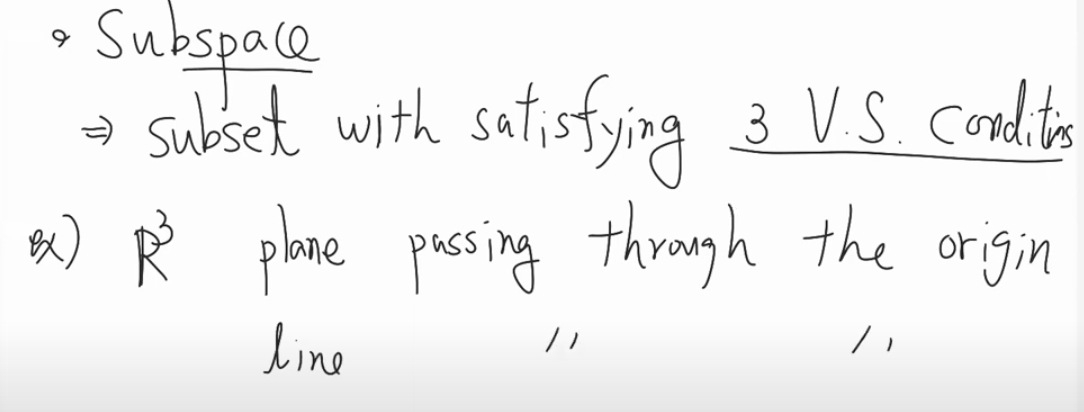 • Subspace
⇒ subset with satisfying 3 V.S. Conditins
ex) ℝ³ plane passing through the origin
line " "